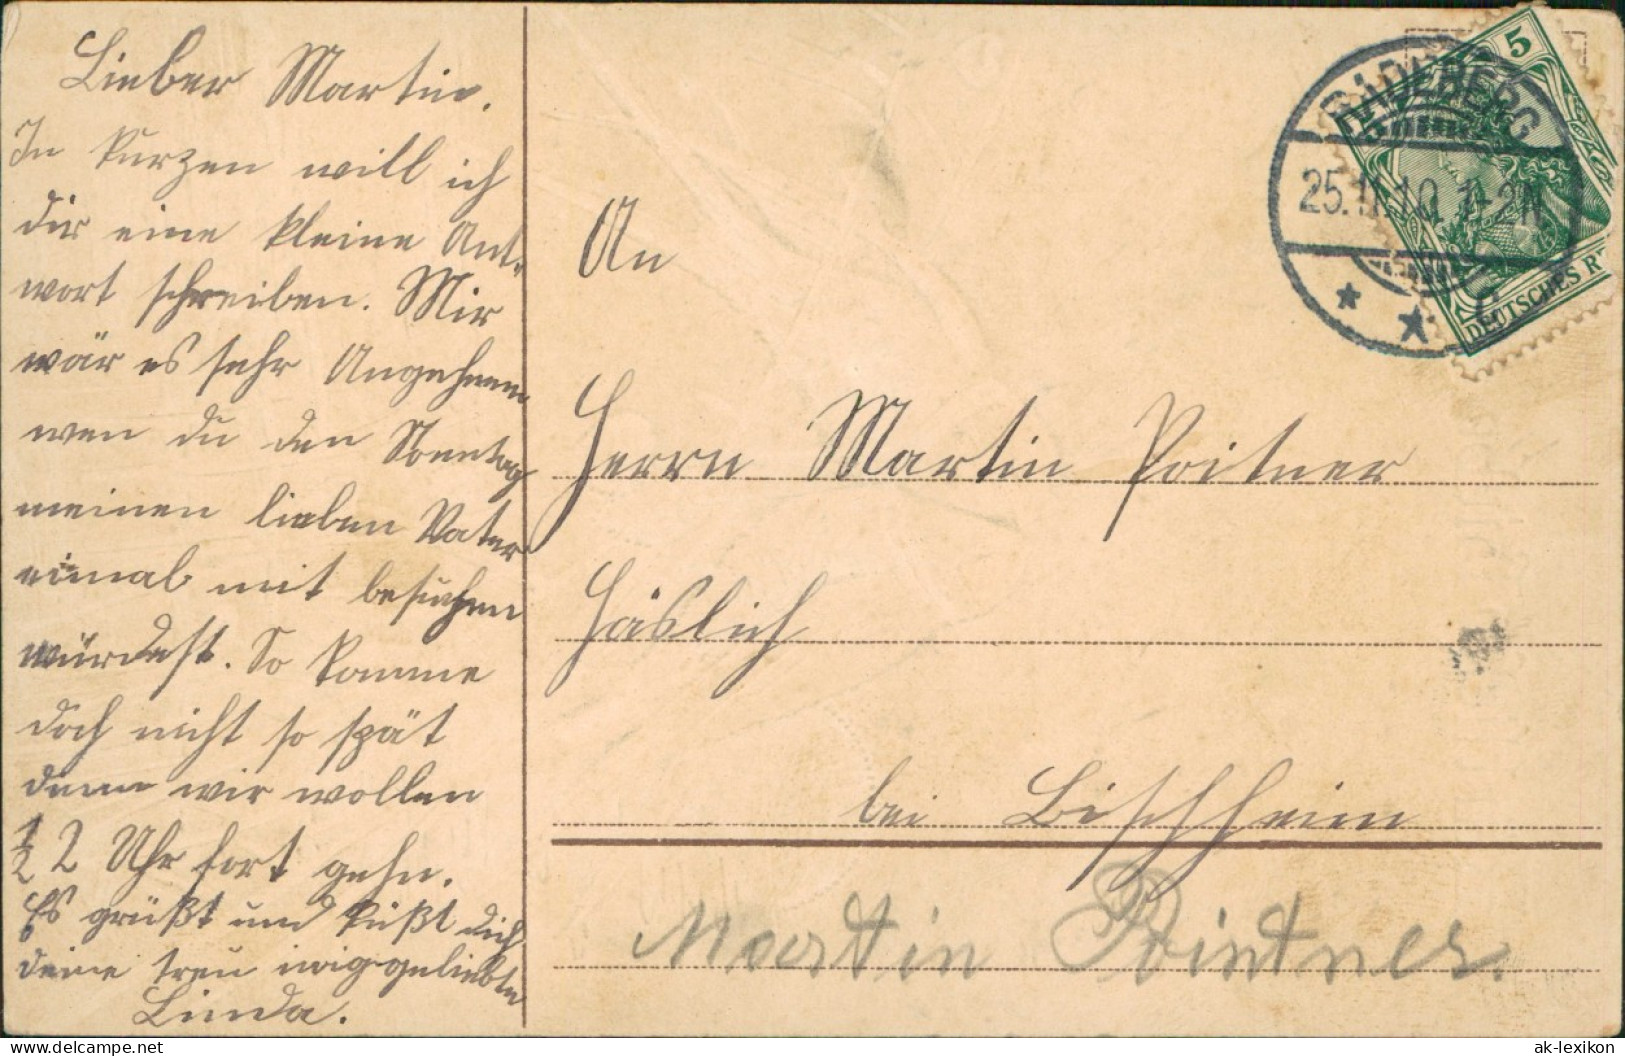 Lieber Martin.
In kurzen will ich
dir eine kleine Ant-
wort schreiben. Mir
wär es sehr Angenehm
wen du den Sonntag
meinen lieben Vater
einmal mit besuchen
würdest. So komme
doch nicht so spät
denn wir wollen
1/2 2 Uhr fort gehn.
Es grüßt und küßt dich
deine treu inniggeliebte
Linda.
An
Herrn Martin Poitner
Häslich
bei Bischheim
Martin Pointner.
RADEBERG
25.11.10. 1-2N
5
DEUTSCHES R
ansichtskarten-lexikon.de
ak-lexikon